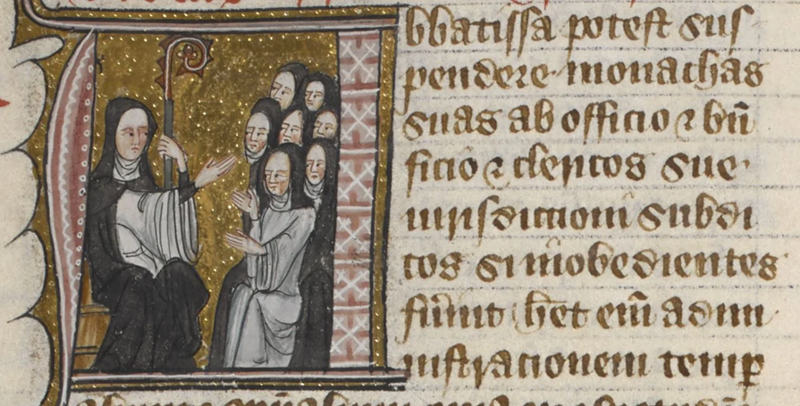 bbatissa potest sus
pendere monachas
suas ab officio ⁊ bñ
ficio ⁊ clericos sue
iurisdictioni subdi
tos si inobedientes
fuerint h̄et em̄ admi
nistrationem temp